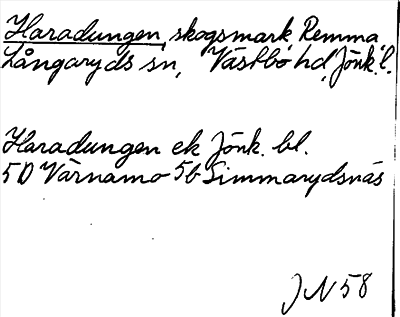 Haradungen, skogsmark, Remma,
Långaryds sn, Västbo hd, Jönk. l.
Haradungen ek Jönk. bl.
5D Värnamo 5b Simmarydsnäs
JN 58